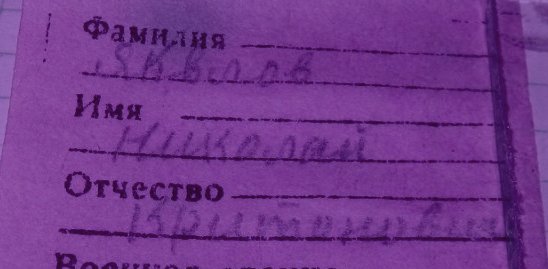 Фамилия
Яквлов
Имя
Николай
Отчество
Критонович
Военное